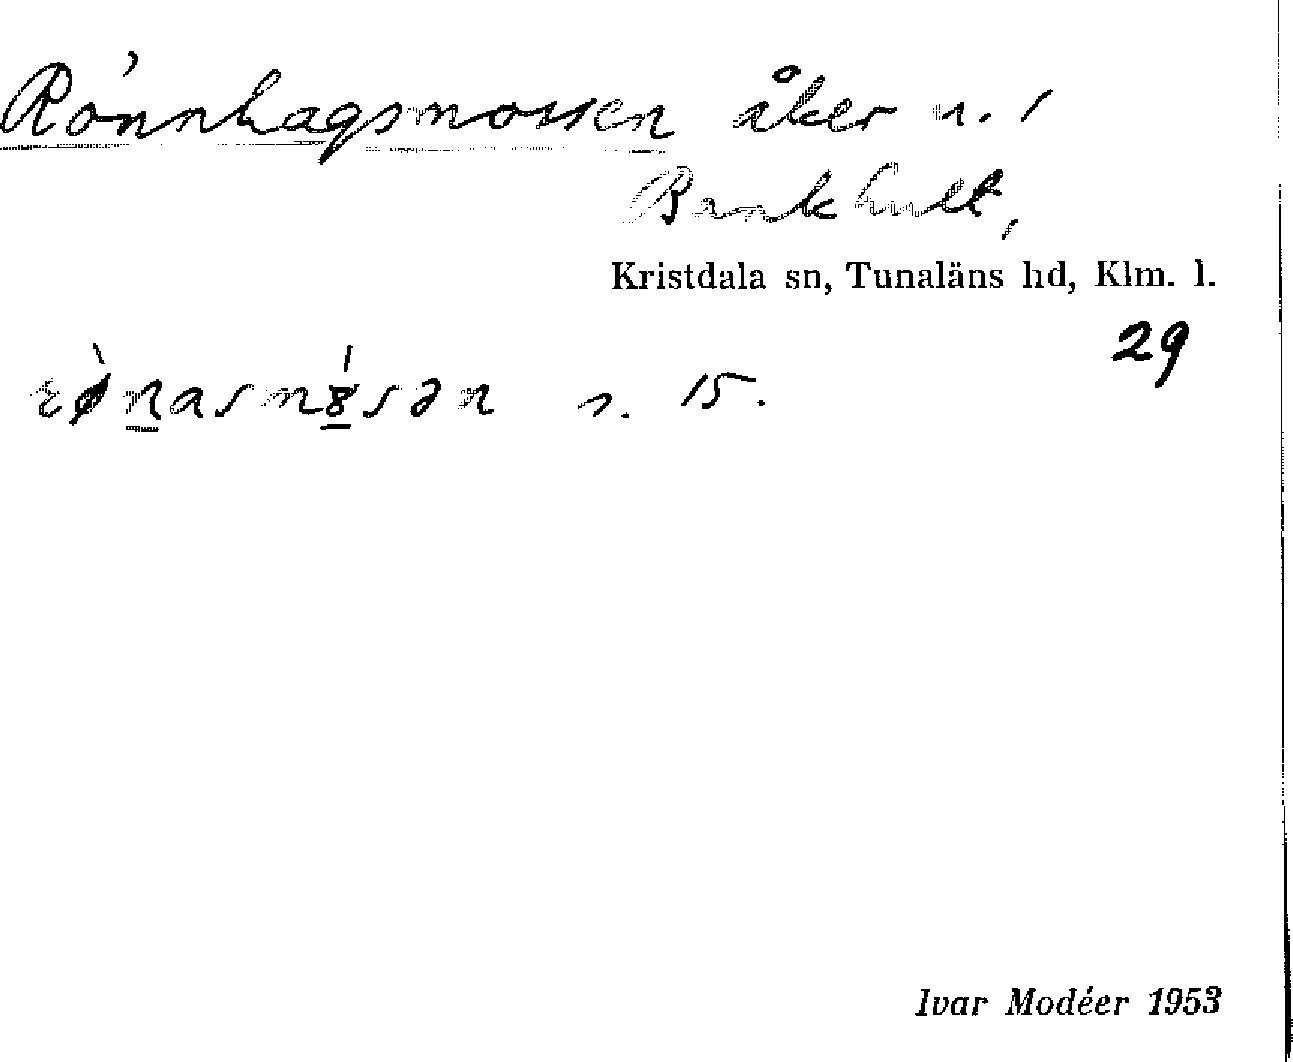 Rönnhagsmossen åker n. 1
Bankhult,
Kristdala sn, Tunaläns hd, Klm. l.
29
s. 15.
Ivar Modéer 1953